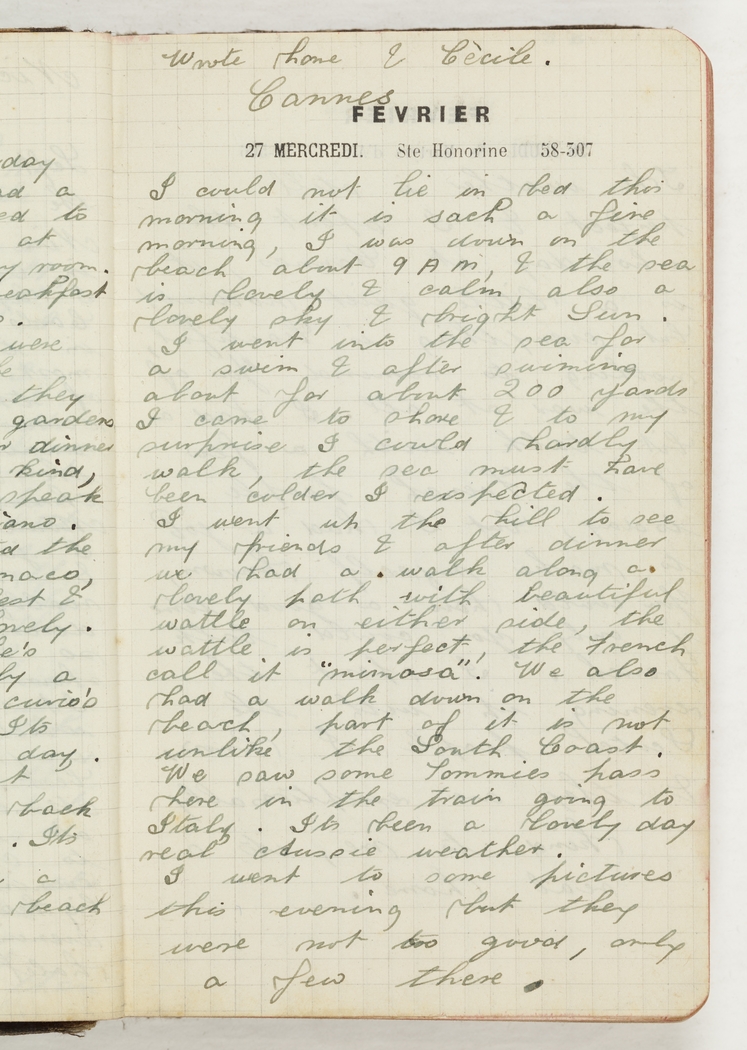 Wrote home & Cècile.
Cannes
FÉVRIER
27 MERCREDI. Ste Honorine 58-307
I could not lie in bed this
morning it is sach a fine
morning, I was down on the
beach about 9 A M, & the sea
is lovely & calm, also a
lovely sky & bright Sun.
I went into the sea for
a swim & after swiming
about for about 200 yards
I came to shore & to my
surprise I cowld hardly
walk, the sea must have
been colder I exspected.
I went up the hill to see
my friends & after dinner
we had a walk along a
lovely path with beautiful
wattle on either side, the
wattle is perfect, the French
call it "mimosa". We also
had a walk down on the
beach, part of it is not
unlike the South Coast.
We saw some Tommies pass
here in the train going to
Italy. Its been a lovely day
real Aussie weather.
I went to some pictures
this evening but they
were not too good, only
a few there.
day
ad a
ed to
at
y room.
eakfast
were
they
gardens
r dinner
kind,
speak
iano.
ed the
naco,
est &
ovely.
le's
by a
curio's
Its
day.
t
back
. Its
a
beach